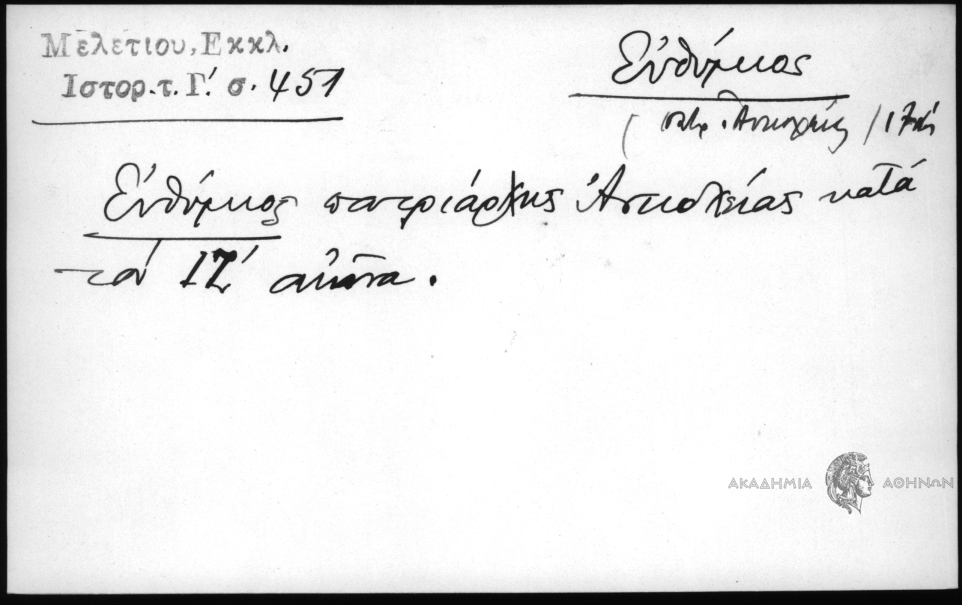 Μελετίου, Εκκλ.
Ιστορ. τ. Γ΄. σ. 451
Εὐθύμιος
( πατρ. Ἀντιοχείας / 17 αἰ
Εὐθύμιος πατριάρχης Ἀντιοχείας κατά
τόν ΙΖ΄ αἰῶνα.
ΑΚΑΔΗΜΙΑ ΑΘΗΝΩΝ